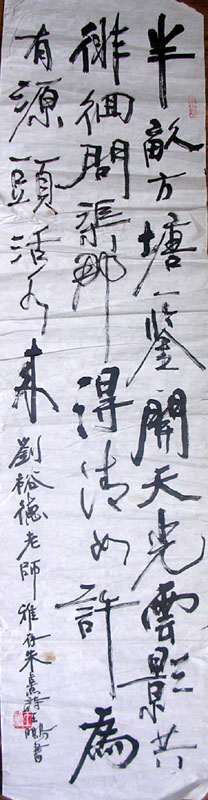 半畝方塘一鑒開天光雲影共
徘徊問渠那得清如許為
有源頭活水來 劉裕德老師雅存朱熹詩書